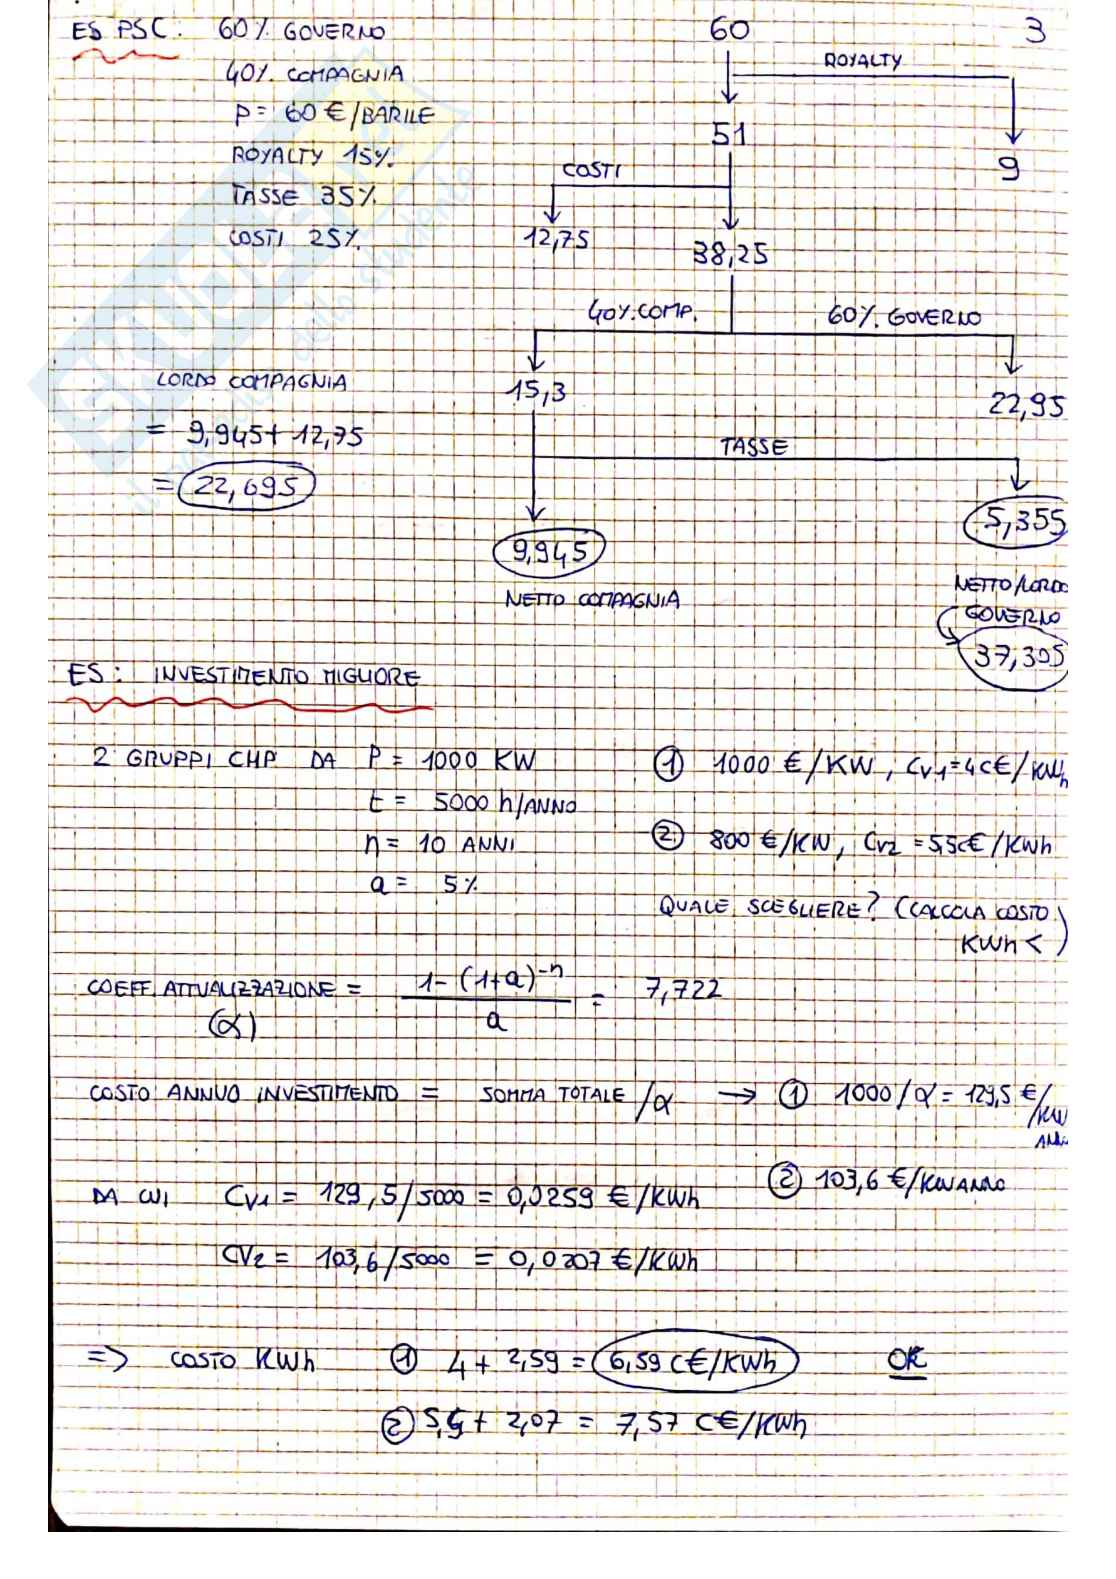 3
ES PSC: 60% GOVERNO
40% COMPAGNIA
P = 60 €/BARILE
ROYALTY 15%
TASSE 35%
COSTI 25%
60
ROYALTY
51
9
COSTI
12,75
38,25
40% COMP.
60% GOVERNO
15,3
22,95
LORDO COMPAGNIA
= 9,945 + 12,75
= 22,695
TASSE
9,945
5,355
NETTO COMPAGNIA
NETTO/LORDO
GOVERNO
37,305
ES: INVESTIMENTO MIGLIORE
2 GRUPPI CHP DA P = 1000 KW
t = 5000 h/ANNO
n = 10 ANNI
a = 5%
① 1000 €/KW, Cv1 = 4 c€/KWh
② 800 €/KW, Cv2 = 5,5 c€/KWh
QUALE SCEGLIERE? (CALCOLA COSTO
KWh <)
COEFF. ATTUALIZZAZIONE = 1-(1+a)^-n / a = 7,722
(α)
COSTO ANNUO INVESTIMENTO = SOMMA TOTALE/α → ① 1000/α = 129,5 €/KW
② 103,6 €/KW ANNO
DA CUI Cv1 = 129,5/5000 = 0,0259 €/KWh
CV2 = 103,6/5000 = 0,0207 €/KWh
=> COSTO KWh ① 4 + 2,59 = 6,59 c€/KWh OK
② 5,5 + 2,07 = 7,57 c€/KWh